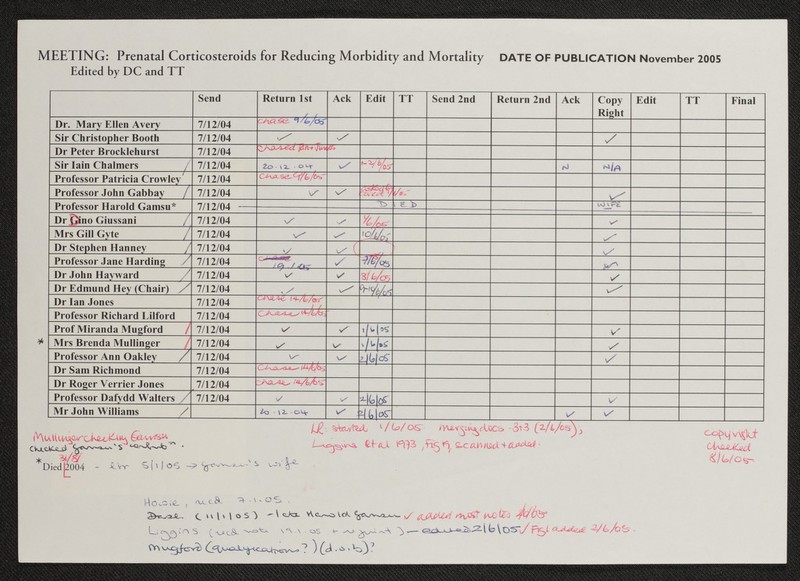 MEETING: Prenatal Corticosteroids for Reducing Morbidity and Mortality DATE OF PUBLICATION November 2005
Edited by DC and TT
Send Return 1st Ack Edit TT Send 2nd Return 2nd Ack Copy Right Edit TT Final
Dr. Mary Ellen Avery 7/12/04 chase 9/6/05
Sir Christopher Booth 7/12/04 ✓ ✓ ✓
Dr Peter Brocklehurst 7/12/04 Chased
Sir Iain Chalmers 7/12/04 20.12.04 ✓ N N/A
Professor Patricia Crowley 7/12/04 Chase 9/6/05
Professor John Gabbay 7/12/04 ✓ ✓ ✓
Professor Harold Gamsu* 7/12/04 D E D WIFE
Dr Gino Giussani 7/12/04 ✓ ✓ 1/6/05 ✓
Mrs Gill Gyte 7/12/04 ✓ ✓ 10/6/05 ✓
Dr Stephen Hanney 7/12/04 ✓ ✓ ✓
Professor Jane Harding 7/12/04 ✓ 7/6/05
Dr John Hayward 7/12/04 ✓ ✓ 8/6/05 ✓
Dr Edmund Hey (Chair) 7/12/04 ✓ ✓ ✓
Dr Ian Jones 7/12/04 Chase 14/6/05
Professor Richard Lilford 7/12/04 Chase 14/6/05
Prof Miranda Mugford 7/12/04 ✓ ✓ 1/6/05 ✓
* Mrs Brenda Mullinger 7/12/04 ✓ ✓ 1/6/05 ✓
Professor Ann Oakley 7/12/04 ✓ ✓ 2/6/05 ✓
Dr Sam Richmond 7/12/04 Chase 14/6/05
Dr Roger Verrier Jones 7/12/04 chase 14/6/05
Professor Dafydd Walters 7/12/04 ✓ ✓ 2/6/05 ✓
Mr John Williams 7/12/04 20.12.04 ✓ 2/6/05 ✓ ✓
LR. started 1/6/05 merging docs 3+3 (2/6/05),
Liggins et al 1973, Fig 9, scanned + added.
copyright checked 8/6/05
Mullinger checking
checked Gamsu's
*Died 2004 - 5/1/05 → Gamsu's wife
Howie, recd 7.1.05.
(11/1/05) - late Harold Gamsu ✓ added most notes
Liggins (recd note 19.1.05 + reprint) - edited 2/6/05 ✓ Fig added 2/6/05
Mugford (qualifications?) (d.o.b)?